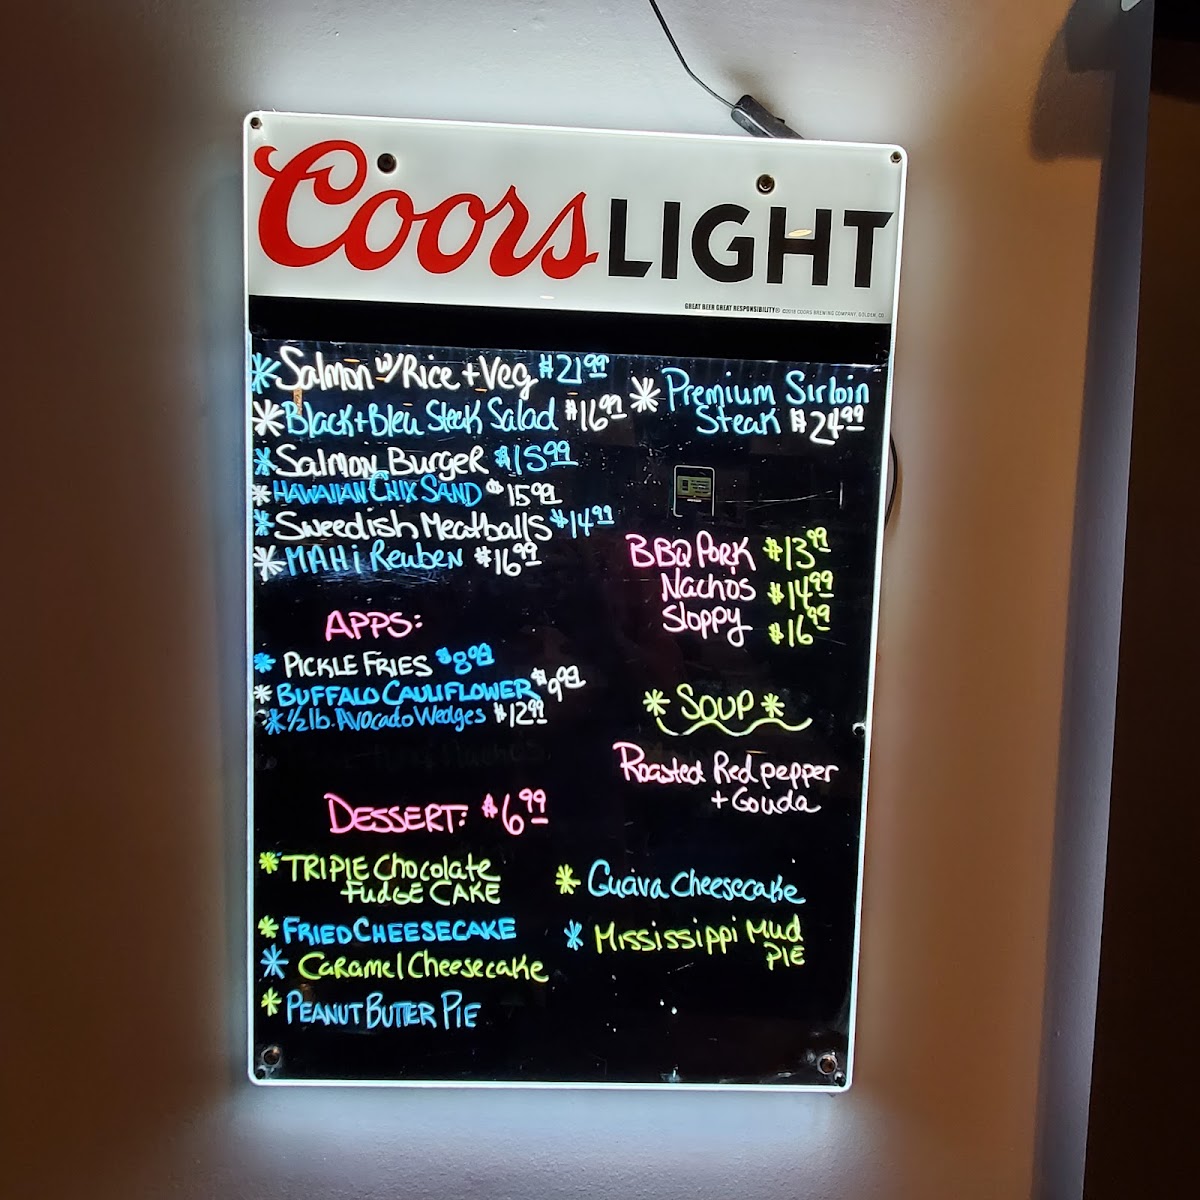 Coors LIGHT
GREAT BEER GREAT RESPONSIBILITY® ©2018 COORS BREWING COMPANY, GOLDEN, CO
* Salmon w/ Rice + Veg $21.99
* Black + Bleu Steak Salad $16.99
* Salmon Burger $15.99
* HAWAIIAN CHIX SAND $15.99
* Sweedish Meatballs $14.99
* MAHi Reuben $16.99
APPS:
* PICKLE FRIES $8.99
* BUFFALO CAULIFLOWER $9.99
* 1/2 lb. Avocado Wedges $12.99
DESSERT: $6.99
* TRIPLE Chocolate
FUDGE CAKE
* FRIED CHEESECAKE
* Caramel Cheesecake
* PEANUT BUTTER PIE
* Premium Sirloin
Steak $24.99
BBQ PORK $13.99
Nachos $14.99
Sloppy $16.99
* SOUP *
Roasted Red pepper
+ Gouda
* Guava Cheesecake
* Mississippi Mud
PIE